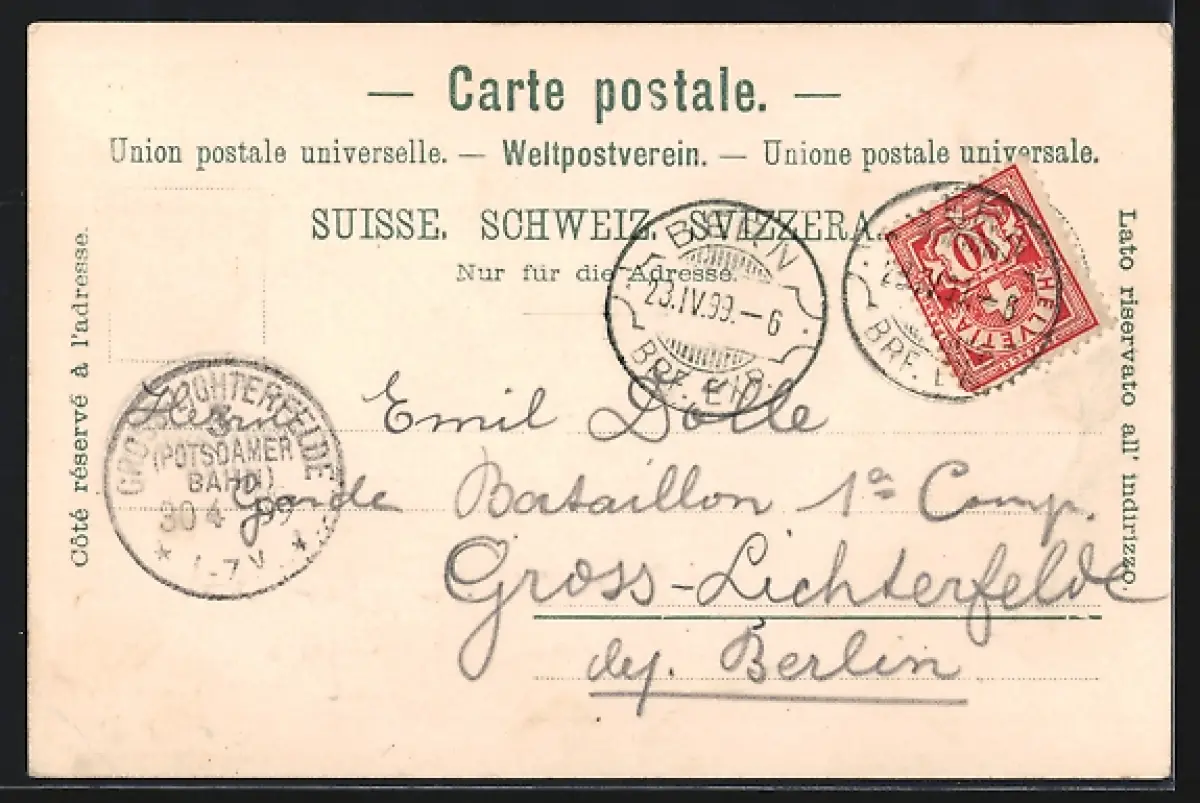 — Carte postale. —
Union postale universelle. — Weltpostverein. — Unione postale universale.
SUISSE. SCHWEIZ. SVIZZERA.
Nur für die Adresse.
Côté réservé à l'adresse.
Lato riservato all' indirizzo.
BERN
23.IV.99.–6
BRF. EXP.
BRF.
10
HELVETIA
GROSS-LICHTERFELDE
3
(POTSDAMER
BAHN)
30 4 99
* 1-7 V. *
Herrn Emil Dolle
Garde Bataillon 1a Comp.
Gross-Lichterfelde
Berlin